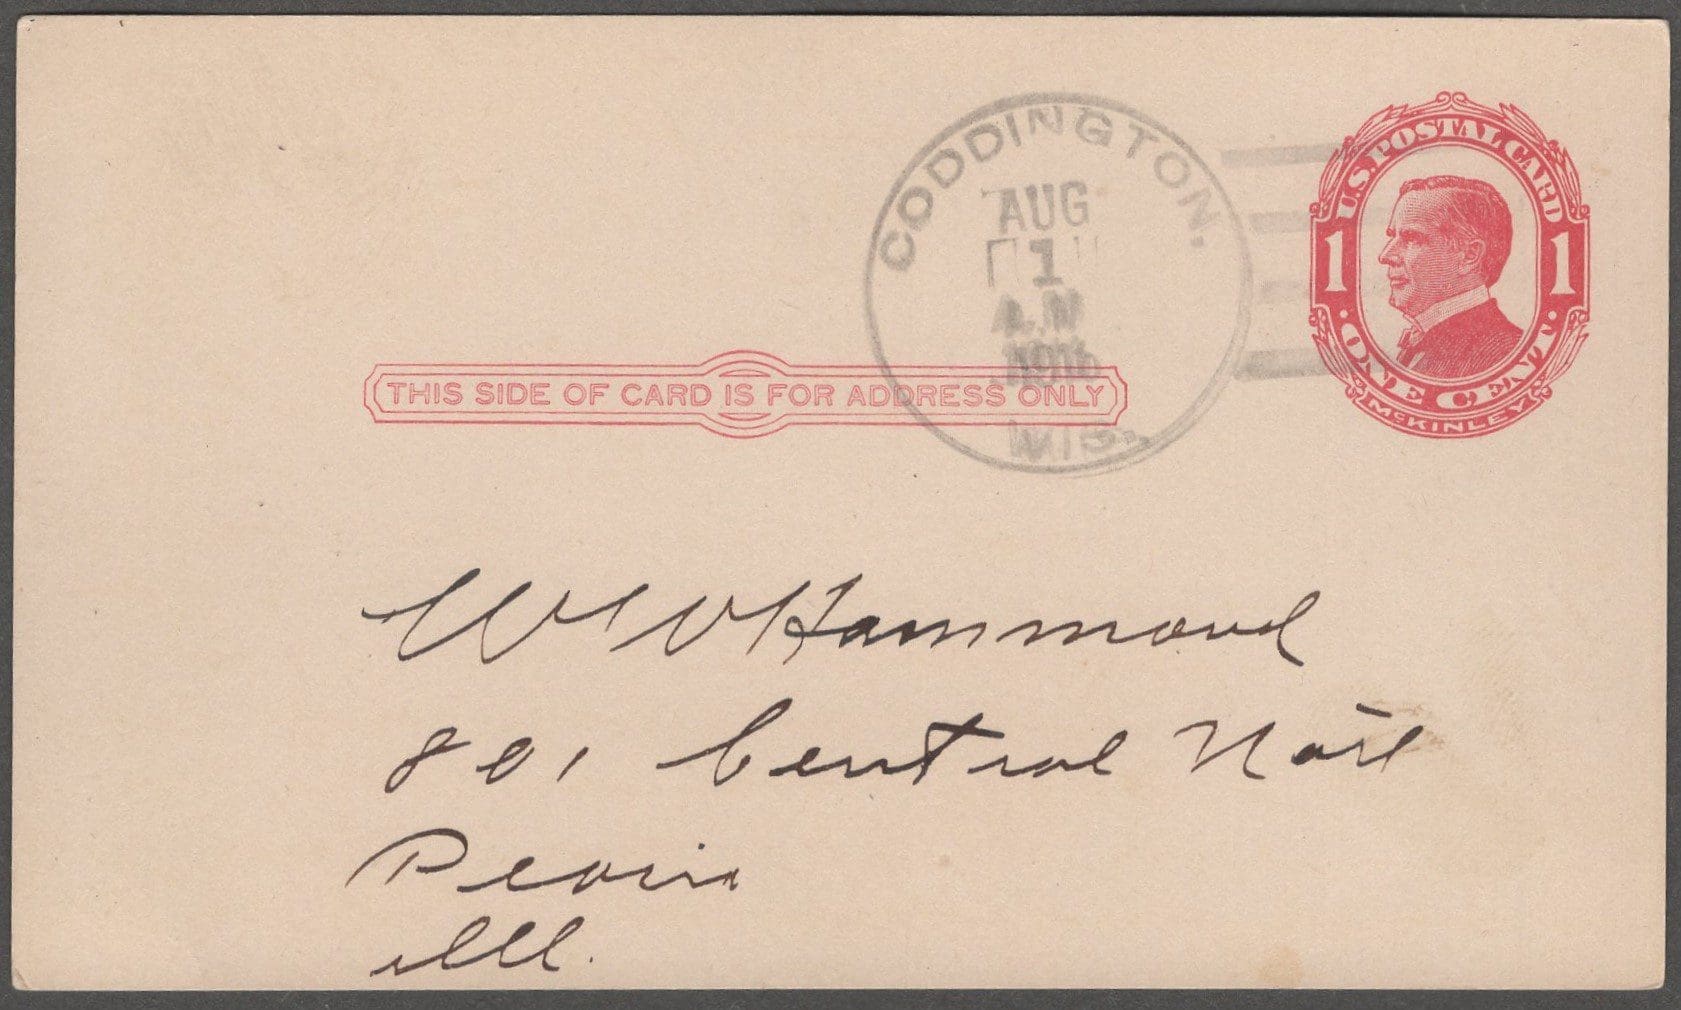 U.S. POSTAL CARD
1 1
· ONE CENT. ·
McKINLEY
CODDINGTON.
AUG
1
A.M
WIS.
THIS SIDE OF CARD IS FOR ADDRESS ONLY
W W Hammond
801 Central Natl
Peoria
Ill.